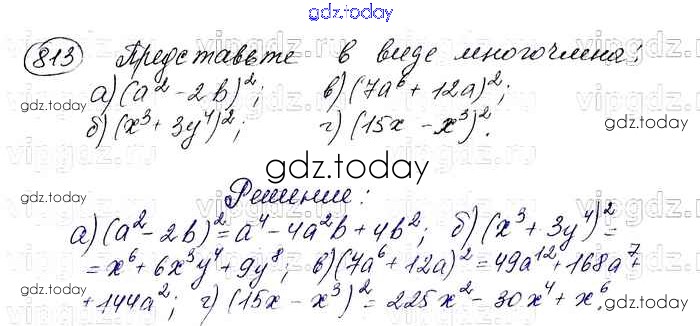 gdz.today
813 Представьте в виде многочлена:
а) (a² - 2b)²; в) (7a⁶ + 12a)²;
gdz.today
б) (x³ + 3y⁴)²; г) (15x - x³)².
gdz.today
Решение:
а) (a² - 2b)² = a⁴ - 4a²b + 4b²; б) (x³ + 3y⁴)² =
= x⁶ + 6x³y⁴ + 9y⁸; в) (7a⁶ + 12a)² = 49a¹² + 168a⁷ +
+ 144a²; г) (15x - x³)² = 225x² - 30x⁴ + x⁶.
gdz.today